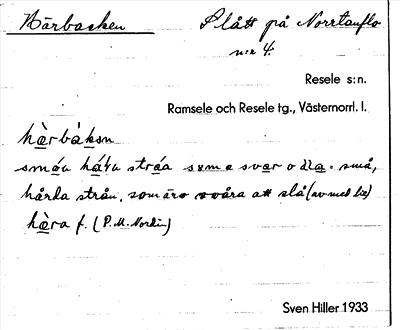 Härbacken Slått på Norrtanflo
n:r 4.
Resele s:n.
Ramsele och Resele tg., Västernorrl. l.
hä̀rbàkən
små,
hårda strån, som äro svåra att slå (av med lie)
hæ̀ra f. (P. M. Nordin)
Sven Hiller 1933